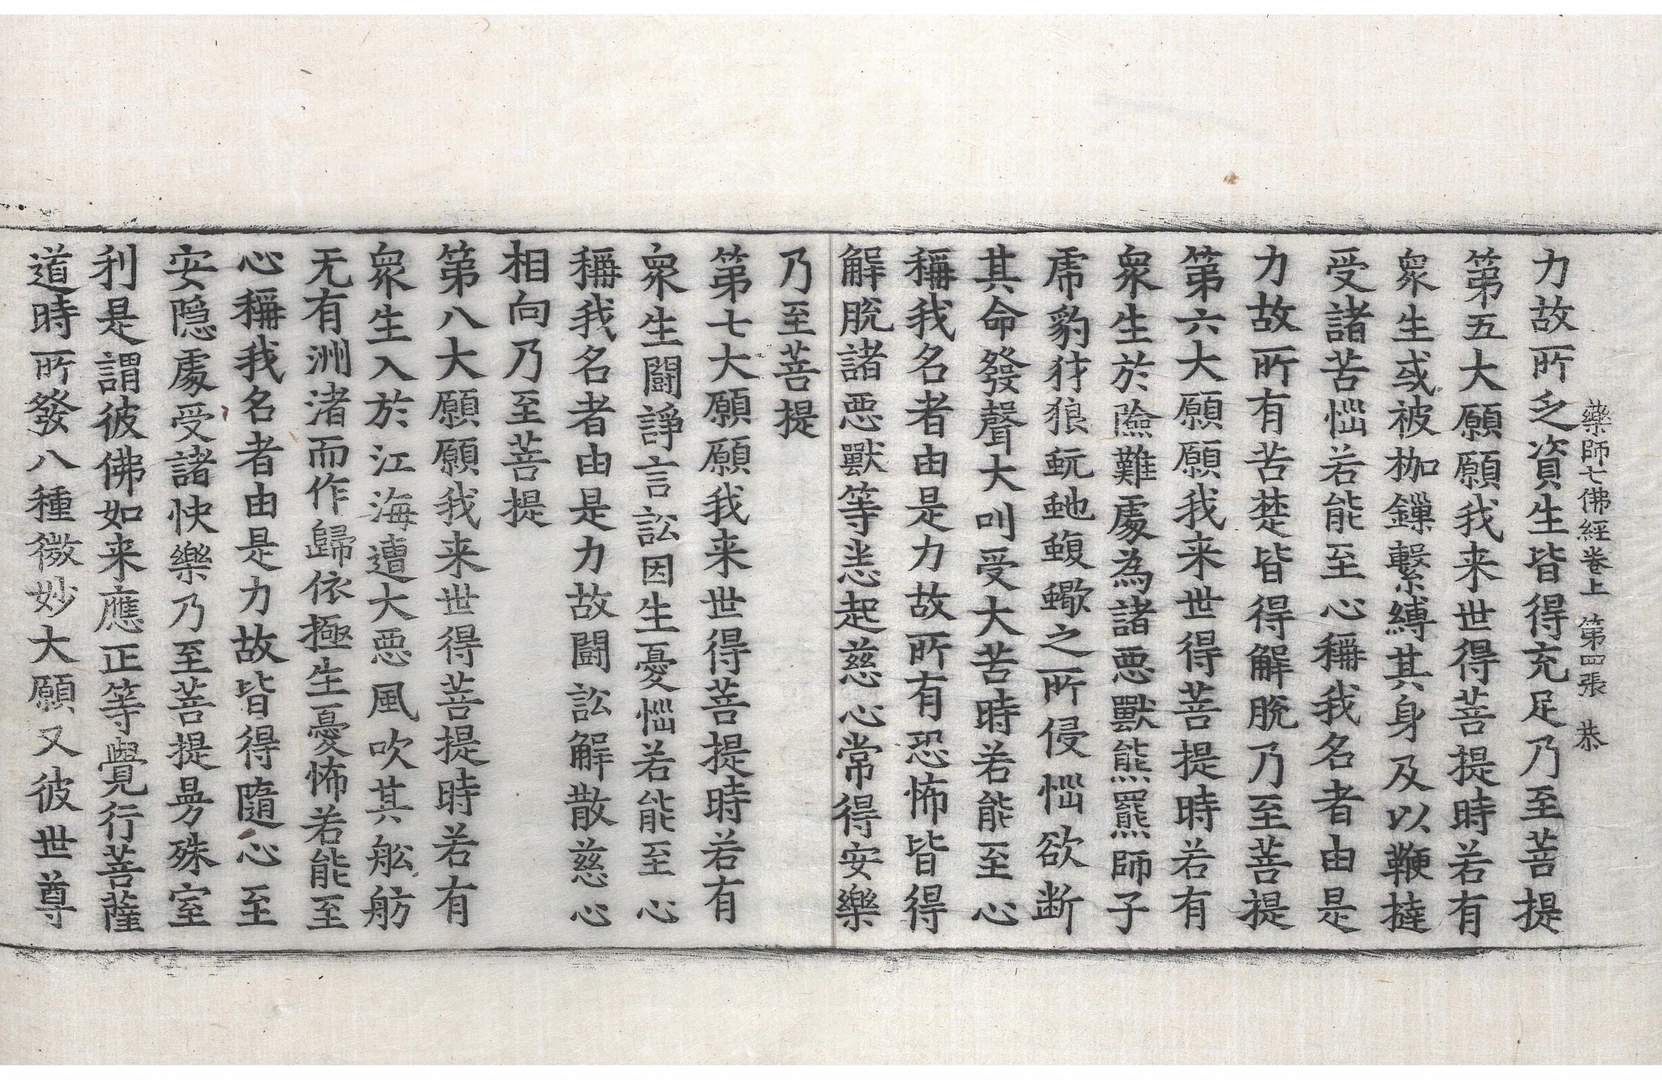 藥師七佛經卷上　第四張　恭
力故所乏資生皆得充足乃至菩提
第五大願願我来世得菩提時若有
衆生或被枷鏁繫縛其身及以鞭撻
受諸苦惱若能至心稱我名者由是
力故所有苦楚皆得解脫乃至菩提
第六大願願我来世得菩提時若有
衆生於險難處為諸惡獸熊羆師子
虎豹犲狼蚖虵蝮蠍之所侵惱欲断
其命發聲大叫受大苦時若能至心
稱我名者由是力故所有恐怖皆得
解脫諸惡獸等悉起慈心常得安樂
乃至菩提
第七大願願我来世得菩提時若有
衆生鬪諍言訟因生憂惱若能至心
稱我名者由是力故鬪訟解散慈心
相向乃至菩提
第八大願願我来世得菩提時若有
衆生入於江海遭大惡風吹其舩舫
无有洲渚而作歸依極生憂怖若能至
心稱我名者由是力故皆得隨心至
安隱處受諸快樂乃至菩提曼殊室
利是謂彼佛如来應正等覺行菩薩
道時所發八種微妙大願又彼世尊